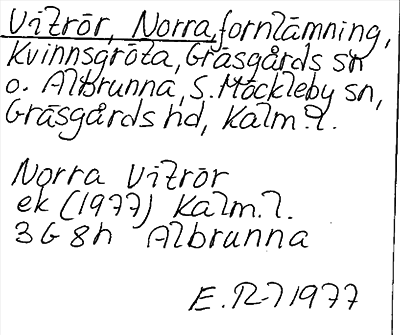 Vitrör, Norra, fornlämning,
Kvinnsgröta, Gräsgårds sn
o. Albrunna, S. Möckleby sn,
Gräsgårds hd, Kalm. l.
Norra Vitrör
ek (1977) Kalm. l.
3G 8h Albrunna
E. R-7 1977